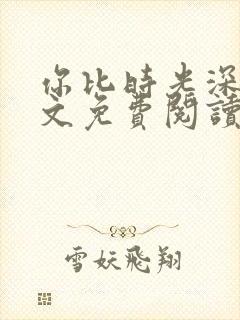 你比時光深
文免費閱讀
雪妖飛翔